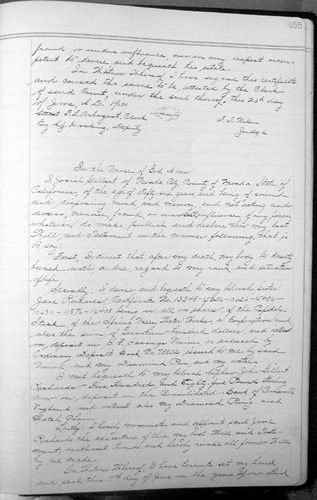 455
fraud or undue influence, nor in any respect incom-
petent to devise and bequeath his estate.
In Witness Whereof I have signed this certificate
and caused the same to be attested by the Clerk
of said Court, under the seal thereof, this 23d day
of June A.D. 1921
Attest F. L. Arbogast, Clerk
By Deputy
Judge
In the Name of God Amen
I Josiah Gilbert of Nevada City, County of Nevada State of
California, of the age of fifty six years and being of sound
and disposing mind and memory, and not acting under
duress, menace, fraud, or undue influence of any person
whatever, do make publish and declare this my last
Will and Testament in the manner following, that is
to say:
First, I direct that after my death my body be decently
buried with due regard to my rank and situation
of life.
Secondly, I devise and bequeath to my beloved sister
Jane Richards, Certificate No.
being in all shares of the Capital
Stock of the Spring Valley Water
also the sum of hundred dollars and
on deposit in savings as evidenced by
ordinary Deposit Book No. issued to me by said
and my Diamond Pin and my watch
I next bequeath to my beloved brother John Gilbert
Richards Five Hundred and Eighty five Pounds Sterling
now on deposit in the Consolidated Bank of Cornwall
England, and interest also my Diamond Ring and
Watch Chain.
Lastly, I hereby nominate and appoint said Jane
Richards the executrix of this my last Will and Testa-
ment, without bonds and hereby revoke all former Wills
by me made.
In Witness Whereof, I have hereunto set my hand
and seal this 7th day of June in the year of our Lord